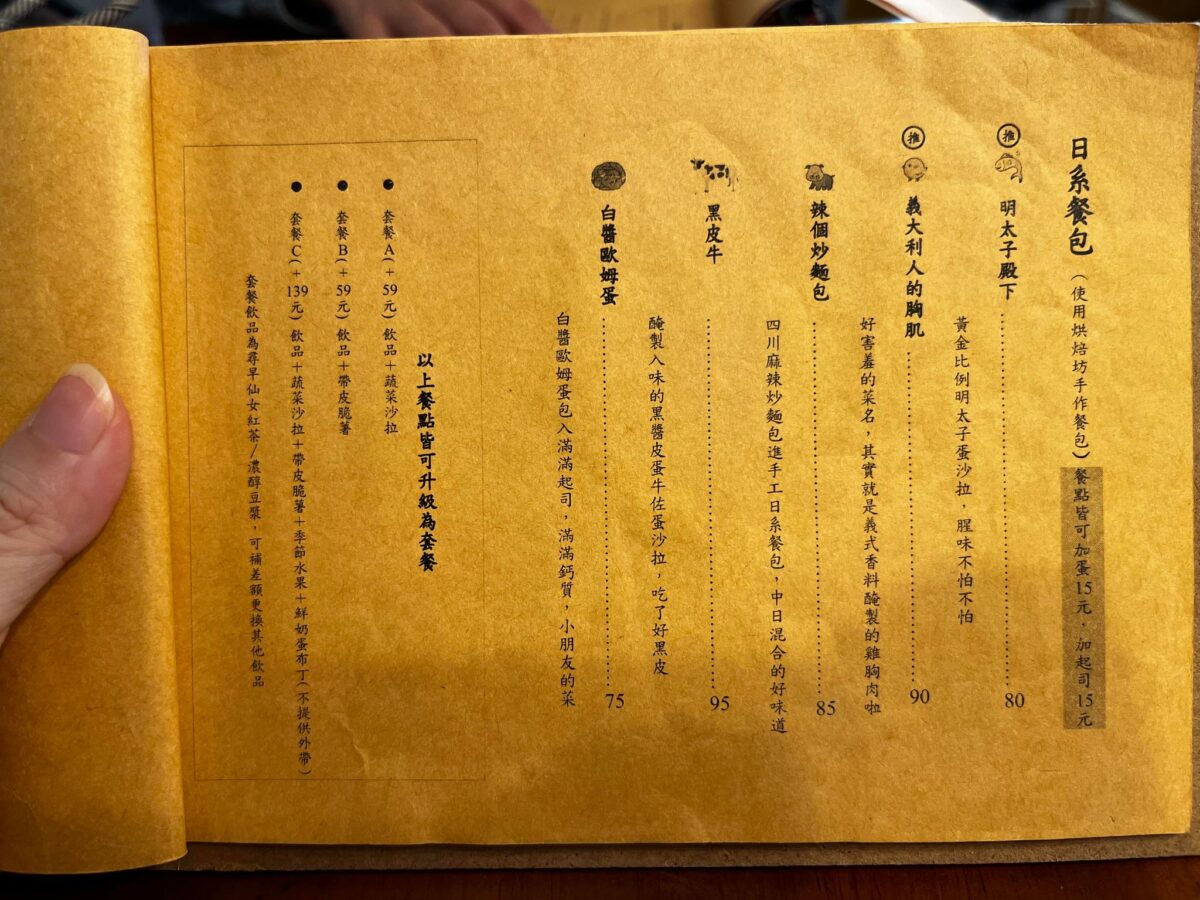 日系餐包（使用烘焙坊手作餐包）餐點皆可加蛋15元，加起司15元
推
明太子殿下 80
黃金比例明太子蛋沙拉，腥味不怕不怕
推
義大利人的胸肌 90
好害羞的菜名，其實就是義式香料醃製的雞胸肉啦
辣個炒麵包 85
四川麻辣炒麵包進手工日系餐包，中日混合的好味道
黑皮牛 95
醃製入味的黑醬皮蛋牛佐蛋沙拉，吃了好黑皮
白醬歐姆蛋 75
白醬歐姆蛋包入滿滿起司，滿滿鈣質，小朋友的菜
以上餐點皆可升級為套餐
● 套餐A(+59元) 飲品+蔬菜沙拉
● 套餐B(+59元) 飲品+帶皮脆薯
● 套餐C(+139元) 飲品+蔬菜沙拉+帶皮脆薯+季節水果+鮮奶蛋布丁(不提供外帶)
套餐飲品為尋早仙女紅茶/濃醇豆漿，可補差額更換其他飲品